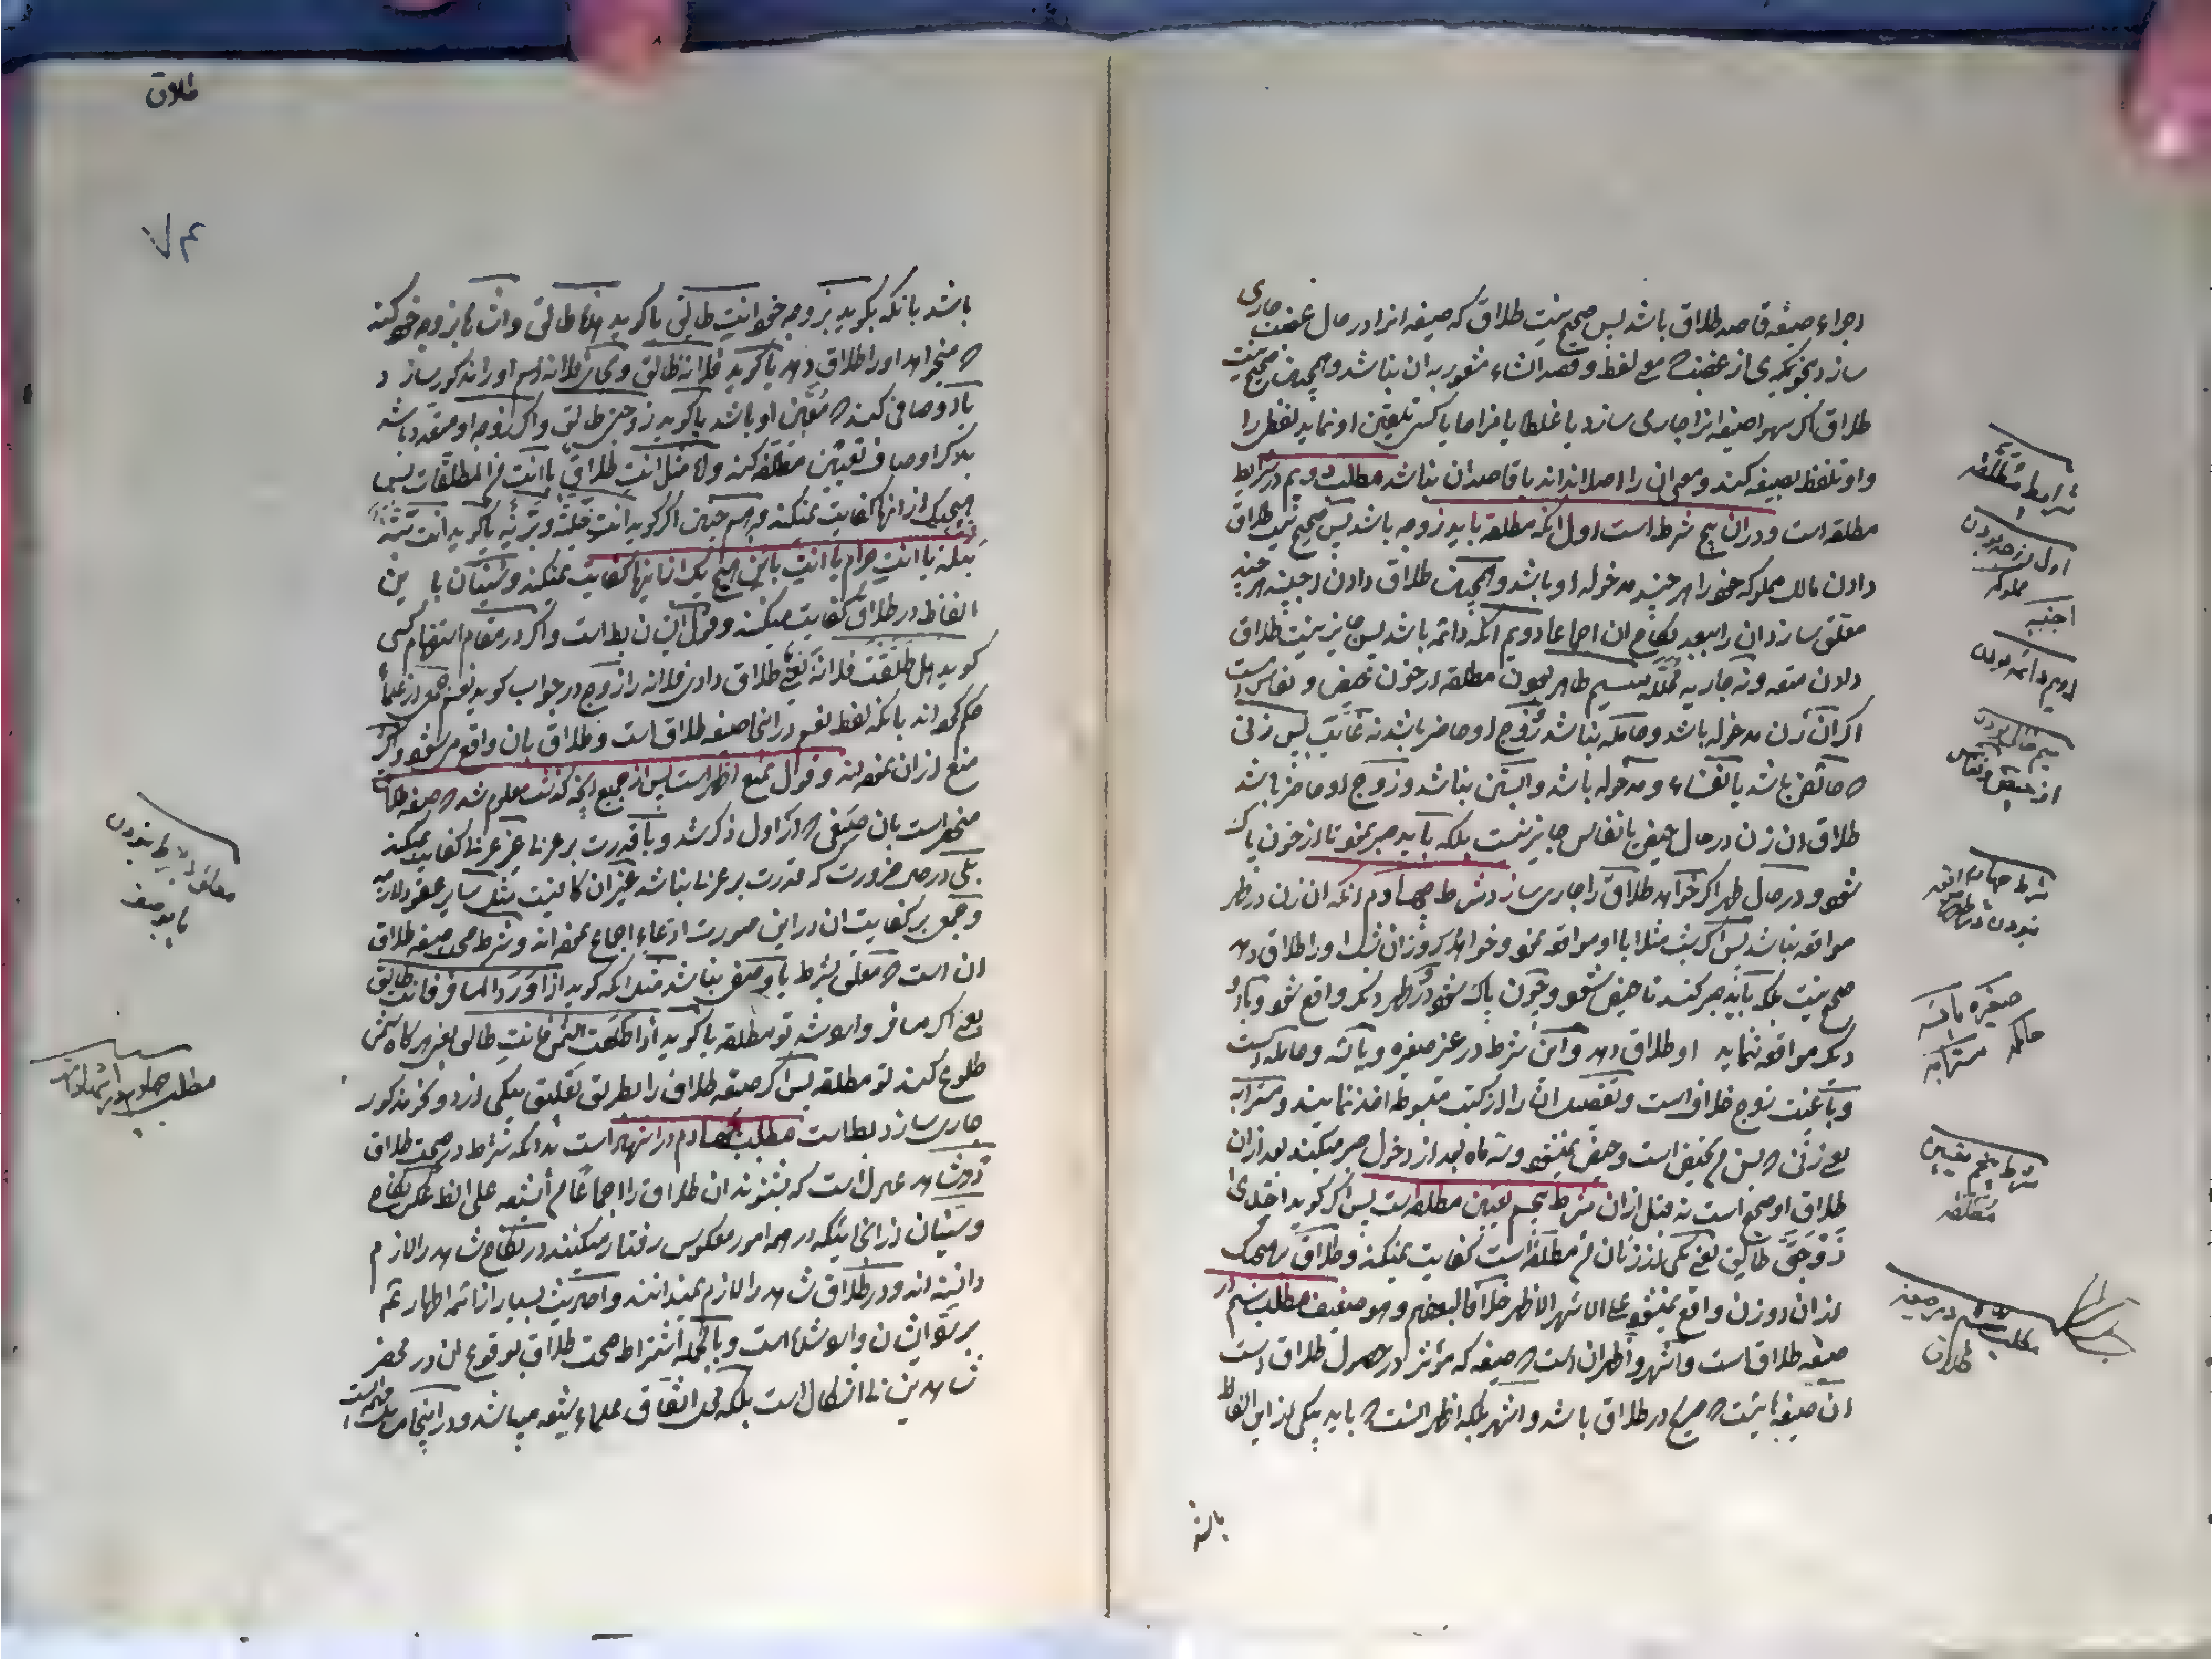 اجراء صیغه قاصد طلاق باشد پس صحیح نیست طلاق که صیغه انرا در حال غضب جاری
سازد بنحویکه از غضب معنی لفظ و قصد انشاء شعور به ان نباشد و همچنین صحیح نیست
طلاق اگر سهوا صیغه انرا جاری سازد یا غلطا یا نزاحا یا کسی تلقین او نماید لفظ را
و او تلفظ بصیغه کند و معنی ان را اصلا نداند یا قاصد ان نباشد مطلب دویم در شرایط
مطلقه است و در ان پنج شرط است اول انکه مطلقه باید زوجه باشد پس صحیح نیست طلاق
دادن مالک مملوکه خود را هر چند مدخوله او باشد و همچنین طلاق دادن اجنبیه هر چند
معلق سازد ان را ببعد نکاح ان اجماعا دویم انکه دائمه باشد پس جایز نیست طلاق
دادن متعه و نه جاریه محلله سیم طاهر بودن مطلقه از خون حیض و نفاس است
اگر ان زن مدخوله باشد و حامله نباشد و زوج او حاضر باشد نه غایب پس زنی
که حائض باشد یا نفساء و مدخوله باشد و ابستن نباشد و زوج او حاضر باشد
طلاق ان زن در حال حیض یا نفاس جایز نیست بلکه باید صبر نمود تا از خون پاک
شود و در حال طهر اگر خواهد طلاق را جاری سازد شرط چهارم انکه ان زن در طهر
مواقعه نباشد پس اگر شب مثلا با او مواقعه نمود و خواهد که روز ان شب او را طلاق دهد
صحیح نیست بلکه باید صبر کند تا حیض شود و چون پاک شود در طهر دیگر واقع شود و باید
دیگر مواقعه ننماید او طلاق دهد و این شرط در غیر صغیره و یائسه و حامله است
و با غیبت زوج خلاف است و تفصیل ان را از کتب مبسوطه اخذ نمایند و مسترابه
یعنی زنی که بسن من تحیض است و حیض نمیشود و سه ماه بعد از دخول صبر میکند بعد از ان
طلاق او صحیح است نه قبل از ان شرط پنجم تعیین مطلقه است پس اگر گوید احدی
زوجتی طالق یعنی یکی از زنان من مطلقه است کفایت نمیکند و طلاق هیچیک
از ان دو زن واقع نمیشود علی الاشهر الاظهر خلافا لبعضهم و هو ضعیف مطلب سیم در
صیغه طلاق است و اشهر و اظهر ان است که صیغه که مؤثر در حصول طلاق است
ان صیغه ایست که صریح در طلاق باشد و اشهر بلکه اظهر انست که باید یکی از این الفاظ
باشد
شرایط مطلقه
اول زوجه بودن
مملوکه
اجنبیه
دویم دائمه بودن
سیم خالی بودن
از حیض و نفاس
شرط چهارم مواقعه
نبودن در طهر
صغیره یائسه
حامله مسترابه
شرط پنجم تعیین
مطلقه
مطلب سیم در صیغه
طلاق
طلاق
باشد بانکه بگوید بزوجه خود انت طالق یا گوید هذه طالق و اشاره بزوجه خود کند
که میخواهد او را طلاق دهد یا گوید فلانه طالق و بجای فلانه اسم او را مذکور سازد
یا اوصافی کند که معین او باشد یا گوید زوجتی طالق و اگر زوجه او متعدد باشد
بذکر اوصاف تعیین مطلقه کند و لا مثل انت طلاق یا انت من المطلقات پس
هیچیک از انها کفایت نمیکند و همچنین اگر گوید انت خلیة و بریة یا گوید انت بتة
بتله یا انت حرام یا انت باین هیچ یک از اینها کفایت نمیکند و سنیان با این
الفاظ در طلاق کفایت میکنند و قول ایشان بط است و اگر در مقام استفهام کسی
گوید هل طلقت فلانة یعنی طلاق دادی فلانه را زوج در جواب گوید نعم جمعی از علما
حکم کرده اند بانکه لفظ نعم در اینجا صیغه طلاق است و طلاق بان واقع میشود و دیگر
منع از ان نموده اند و قول بمنع اظهر است پس از جمیع انچه گذشت معلوم شد که صیغه طلاق
منحصر است بان صیغی که در اول ذکر شد و با قدرت بر عربی غیر عربی کفایت نمیکند
بلی در صورت ضرورت که قدرت بر عربی نباشد غیر ان کافیست مثل سایر عقود لازمه
و جمعی بر کفایت ان در این صورت ادعاء اجماع نموده اند و شرط صحت صیغه طلاق
ان است که معلق بشرط یا وصفی نباشد مثل انکه گوید اذا ورد المسافر فانت طالق
یعنی اگر مسافر وارد شد تو مطلقه یا گوید اذا طلعت الشمس فانت طالق یعنی هر گاه شمس
طلوع کند تو مطلقه پس اگر صیغه طلاق را بطریق تعلیق بیکی از دو نحو مذکور
جاری سازد بط است مطلب چهارم در اشهاد است بدانکه شرط در صحت طلاق
دو شاهد عدل است که بشنوند ان طلاق را اجماعا من الشیعه علی الظ بعکس نکاح
و سنیان از انجائیکه در همه امور معکوس رفتار میکنند در نکاح شاهد را لازم
دانسته اند و در طلاق شاهد را لازم نمیدانند و احادیث بسیار از ائمه اطهار هم
بر سؤ ایشان وارد شده است و بالجمله اشتراط صحت طلاق بوقوع ان در محضر
شاهدین بی اشکال است بلکه محل اتفاق علماء شیعه میباشد و در اینجا مسایل مهمه است
معلق بشرط نبودن
یا بوصف
مطلب چهارم در اشهاد